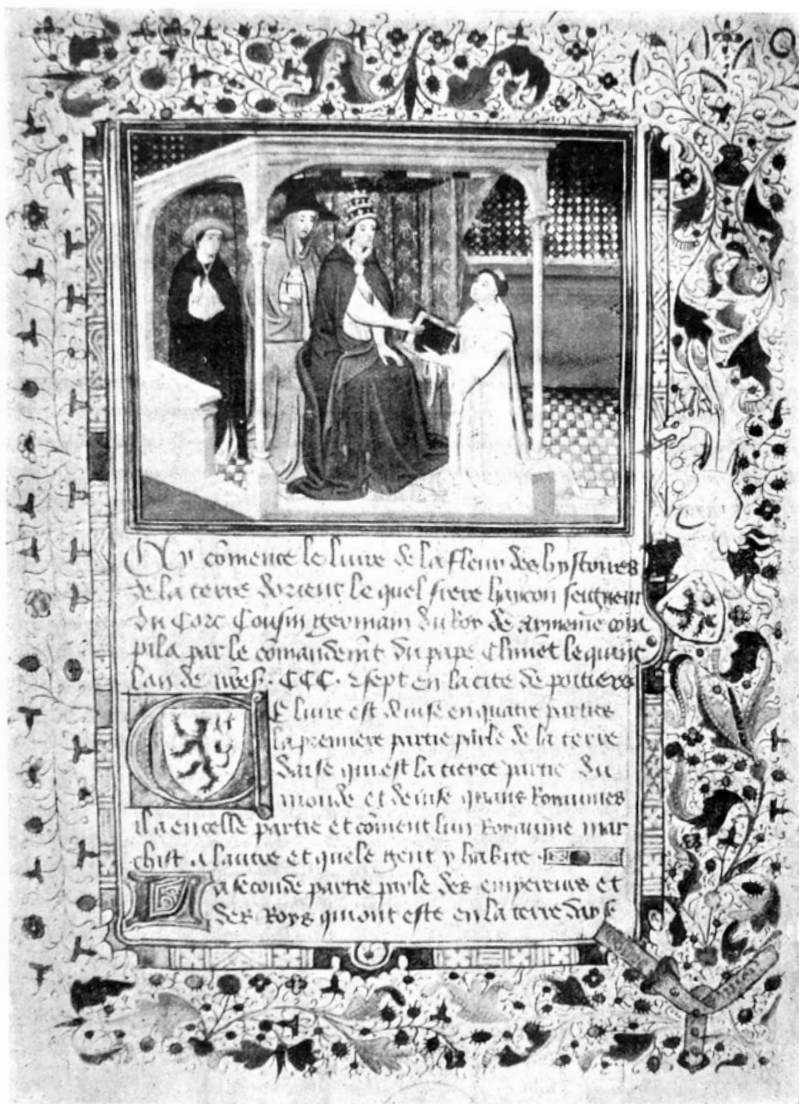 Cy cōmence le liure de la fleur des hystoires
de la terre dorient le quel frere hancon seigneur
du Corc Cousin germain du Roy de Armenie com
pila par le comandemt du pape Climēt le quint
lan de nres. CCC. & sept en la cite de poitiers
Ce liure est deuise en quatre parties
la premiere partie parle de la terre
daise qui est la tierce partie du
monde et deuise quans Royaumes
il a en celle partie et cōment lun Royaume mar
chist a lautre et quele gent y habite
La seconde partie parle des empereurs et
des Roys qui ont este en la terre dayse